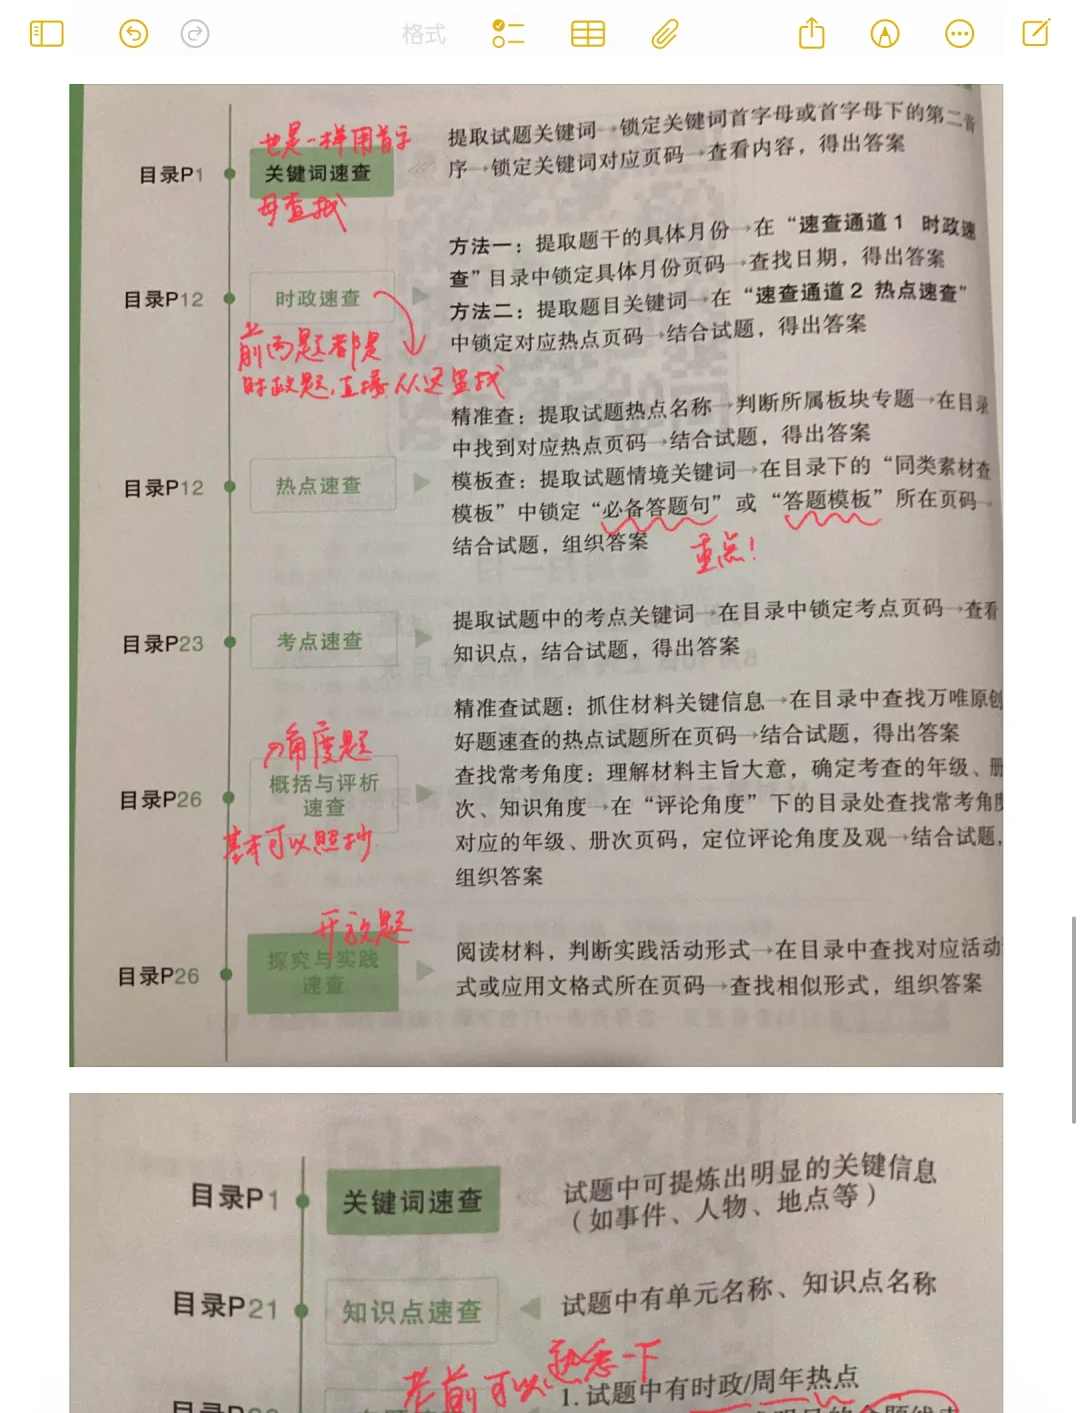 格式
也是一样用首字
母查找
目录P1
关键词速查
提取试题关键词→锁定关键词首字母或首字母下的第二音
序→锁定关键词对应页码→查看内容，得出答案
目录P12
时政速查
前两题都是
时政题，直接从这里找
方法一：提取题干的具体月份→在“速查通道1 时政速
查”目录中锁定具体月份页码→查找日期，得出答案
方法二：提取题目关键词→在“速查通道2 热点速查”
中锁定对应热点页码→结合试题，得出答案
目录P12
热点速查
精准查：提取试题热点名称→判断所属板块专题→在目录
中找到对应热点页码→结合试题，得出答案
模板查：提取试题情境关键词→在目录下的“同类素材查
模板”中锁定“必备答题句”或“答题模板”所在页码→
结合试题，组织答案
重点！
目录P23
考点速查
提取试题中的考点关键词→在目录中锁定考点页码→查看
知识点，结合试题，得出答案
目录P26
角度题
概括与评析
速查
基本可以照抄
精准查试题：抓住材料关键信息→在目录中查找万唯原创
好题速查的热点试题所在页码→结合试题，得出答案
查找常考角度：理解材料主旨大意，确定考查的年级、册
次、知识角度→在“评论角度”下的目录处查找常考角度
对应的年级、册次页码，定位评论角度及观→结合试题，
组织答案
目录P26
开放题
探究与实践
速查
阅读材料，判断实践活动形式→在目录中查找对应活动
式或应用文格式所在页码→查找相似形式，组织答案
目录P1
关键词速查
试题中可提炼出明显的关键信息
（如事件、人物、地点等）
目录P21
知识点速查
试题中有单元名称、知识点名称
考前可以熟悉一下
1.试题中有时政/周年热点